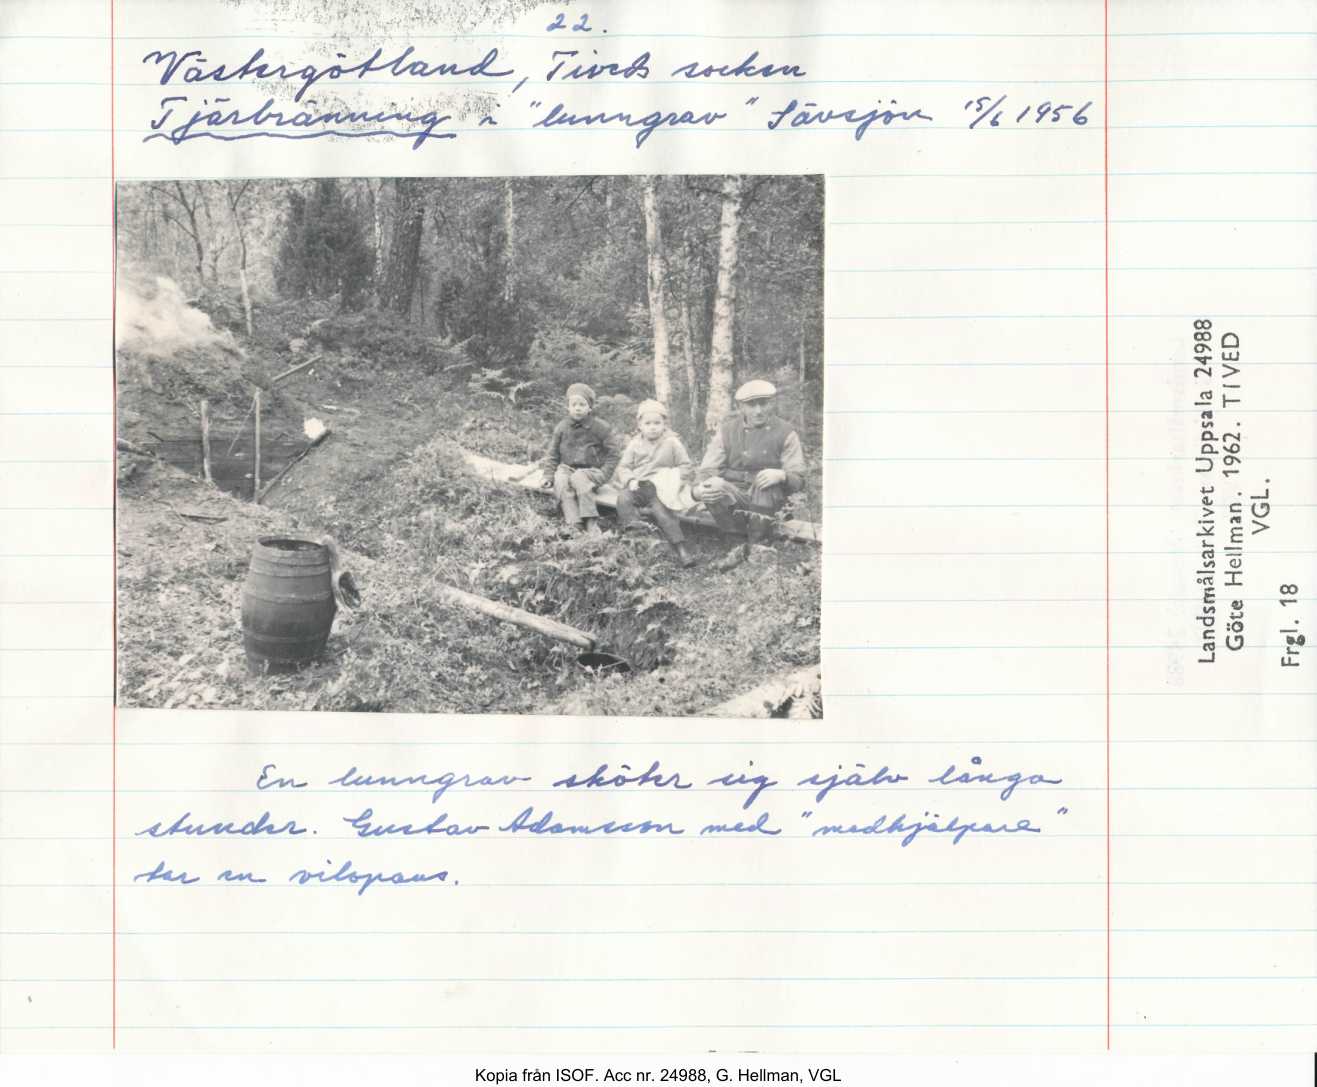 22.
Västergötland, Tiveds socken
Tjärbränning i "lunngrav" Sävsjön 15/6 1956
Landsmålsarkivet Uppsala 24988
Göte Hellman. 1962. TIVED
VGL.
Frgl. 18
En lunngrav sköter sig själv långa
stunder. Gustav Adamsson med "medhjälpare"
tar en vilopaus.
Kopia från ISOF. Acc nr. 24988, G. Hellman, VGL